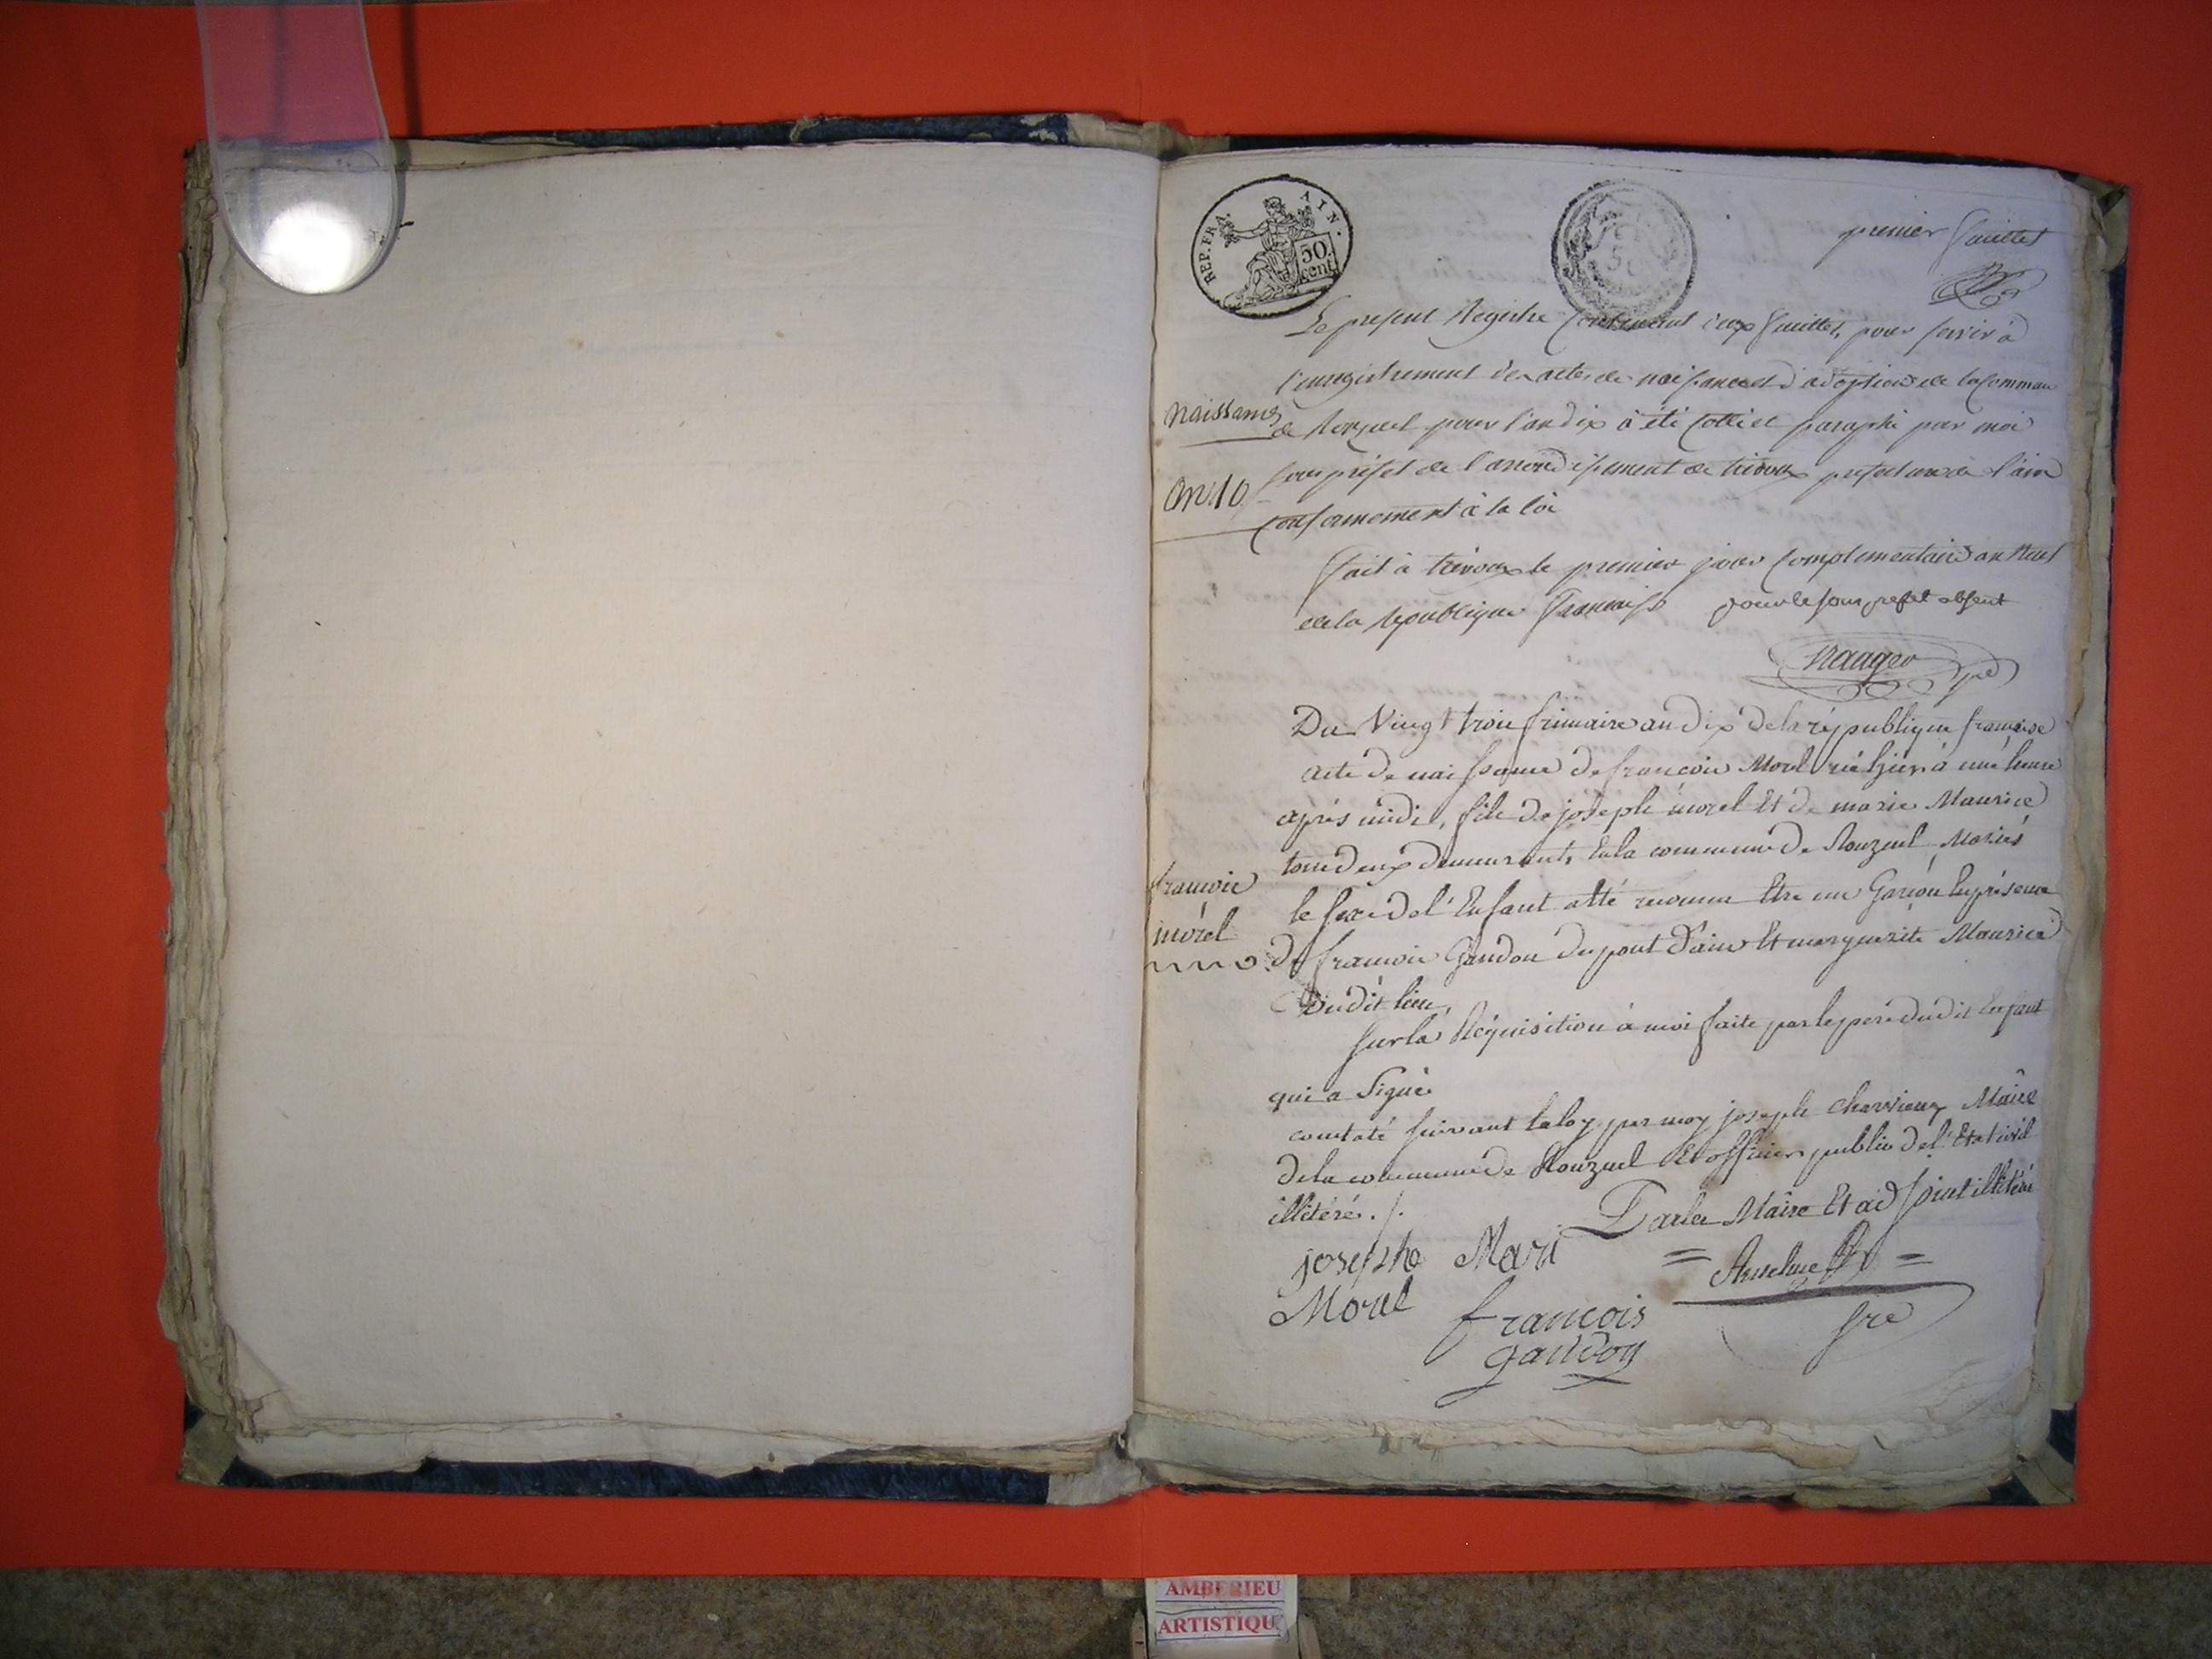 REP. FRA. AIN.
50
cent
premier feuillet
Le present Registre Contenant deux feuillets, pour servir à
l'enregistrement des actes de naissance et d'adoption de la commune
Naissance
de Ronzuel pour l'an dix a été Cotté et paraphé par moi
an 10
sous préfet de l'arrondissement de trévoux prefecture de l'ain
Conformement à la loi
fait à trévoux le premier jour Complementaire an neuf
de la République française pour le sous prefet absent
Du Vingt trois frimaire an dix de la république française
acte de naissance de françois Morel né hier à une heure
après midi, fils de joseph morel Et de marie Maurice
tous deux demeurants En la commune de Ronzuel, Mariés
françois
morel
le sexe de l'Enfant a été reconnu Etre un Garçon En présence
de françois Gandon du pont d'ain Et marguerite Maurice
Dudit lieu,
sur la Réquisition à moi faite par le pere dudit Enfant
qui a Signé
constaté suivant la loy par moy joseph charvieux Maire
de la commune de Ronzuel Et officier public de l'Etat civil
illétéré ./.
Par les Maire Et adjoint illétéré
josephe Mari
Morel
Anselme
françois
gandon
sre
AMBERIEU
ARTISTIQU